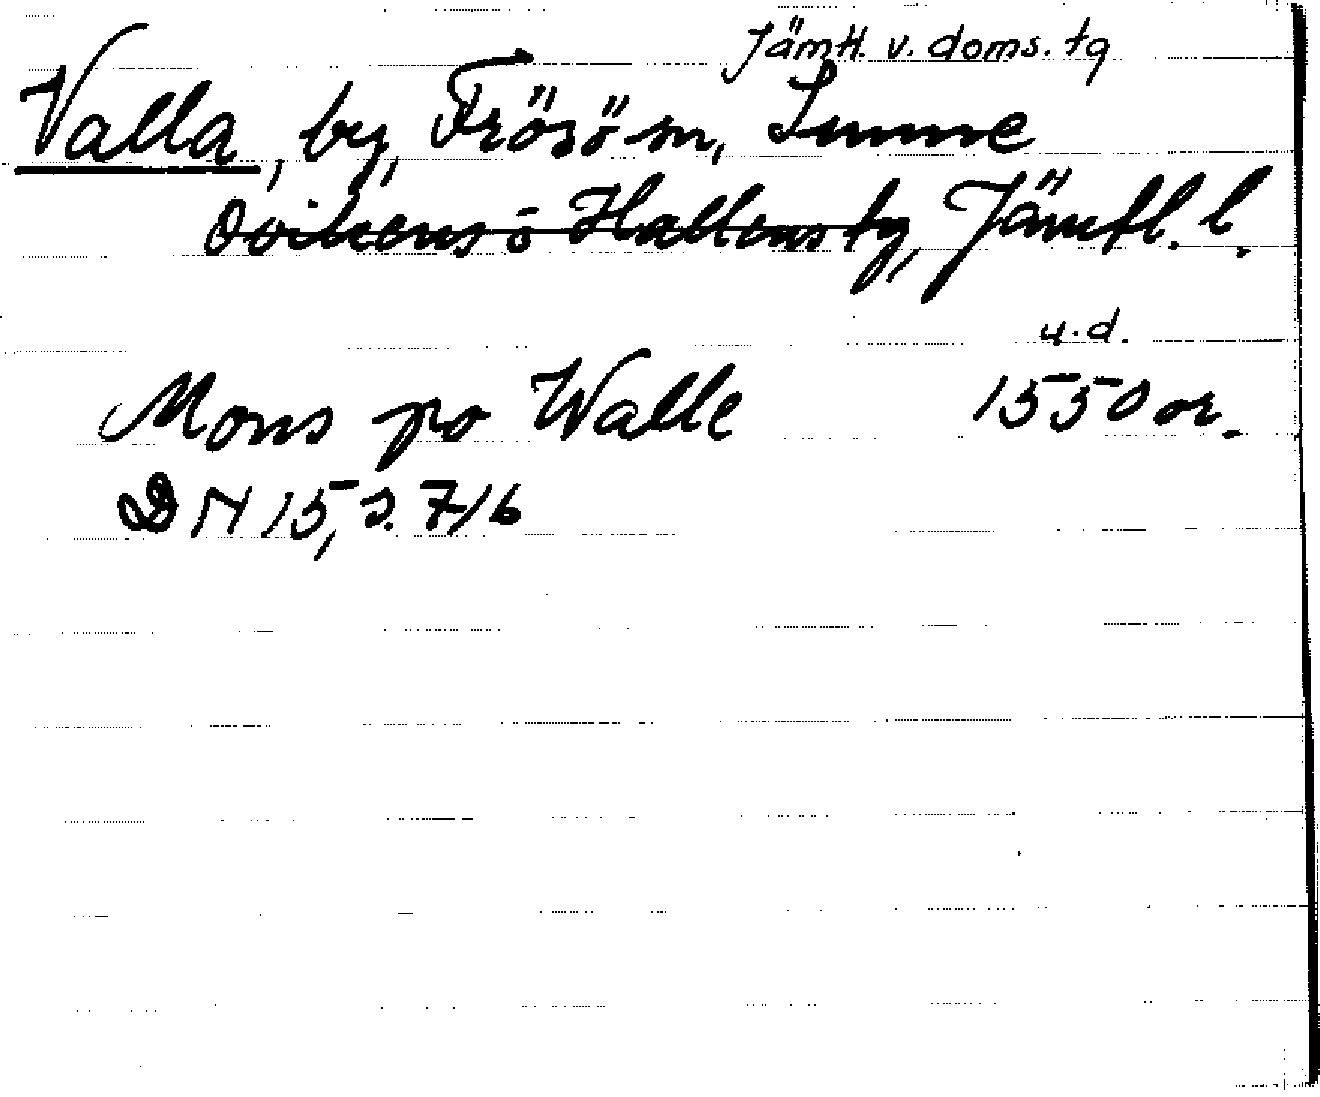 Jämtl. v. doms. tg
Valla, by, Frösö sn, Sunne
Ovikens o Hallens tg, Jämtl. l.
u.d.
Mons po Walle 1550 or.
DN 15, s. 716